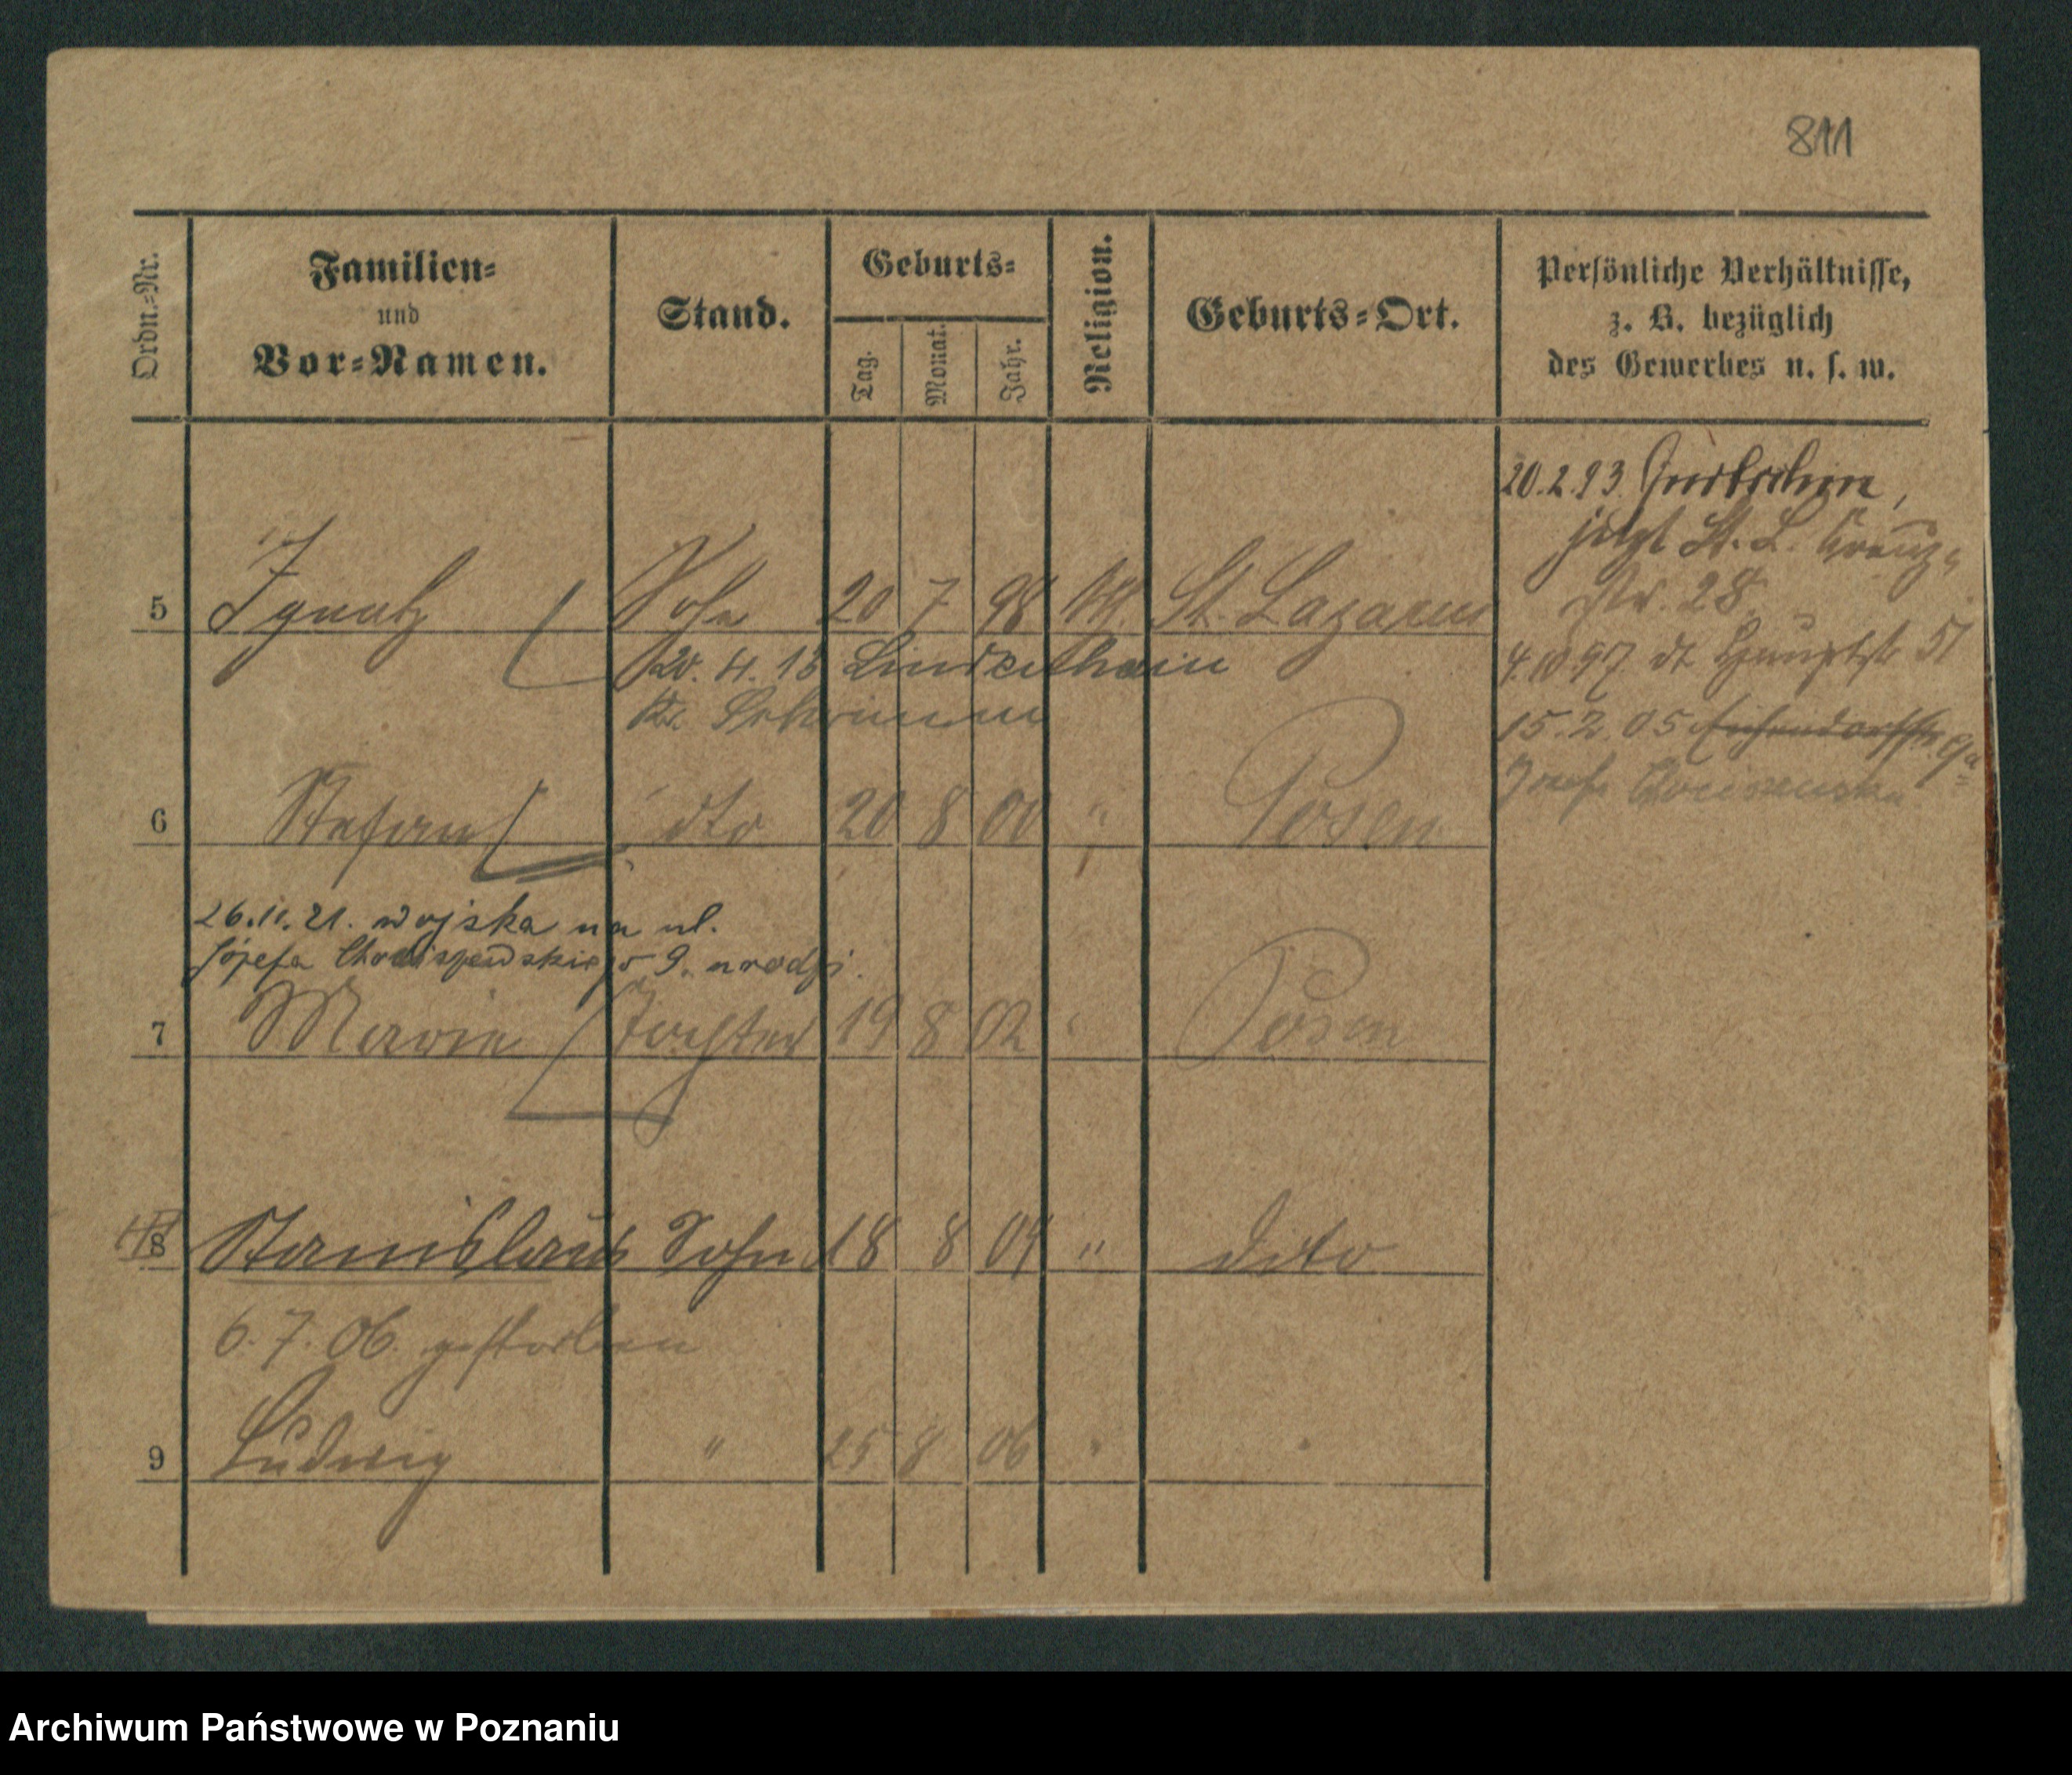 811
Ordn.=Nr.
Familien=
und
Vor=Namen.
Stand.
Geburts=
Tag.
Monat.
Jahr.
Religion.
Geburts=Ort.
Persönliche Verhältnisse,
z. B. bezüglich
des Gewerbes u. s. w.
20.2.93 Gurtschin,
jetzt St. L. Kreuz=
Str. 28
4.10.97 dt Hauptstr 51
15.2.05 Eichendorffstr. 9a
Josefa
5 Ignatz Sohn 20 7 98 kth. St. Lazarus
20. 4. 13 Lindenhain
Kr. Schrimm
6 Stefan dto 20 8 00 " Posen
26.11.21. wojska na ul.
Józefa Chociszewskiego 9. urodz.
7 Marie Tochter 19 8 02 " Posen
8 Stanislaus Sohn 18 8 04 " dito
6.7.06. gestorben
9 Ludwig " 25 8 06 "
Archiwum Państwowe w Poznaniu